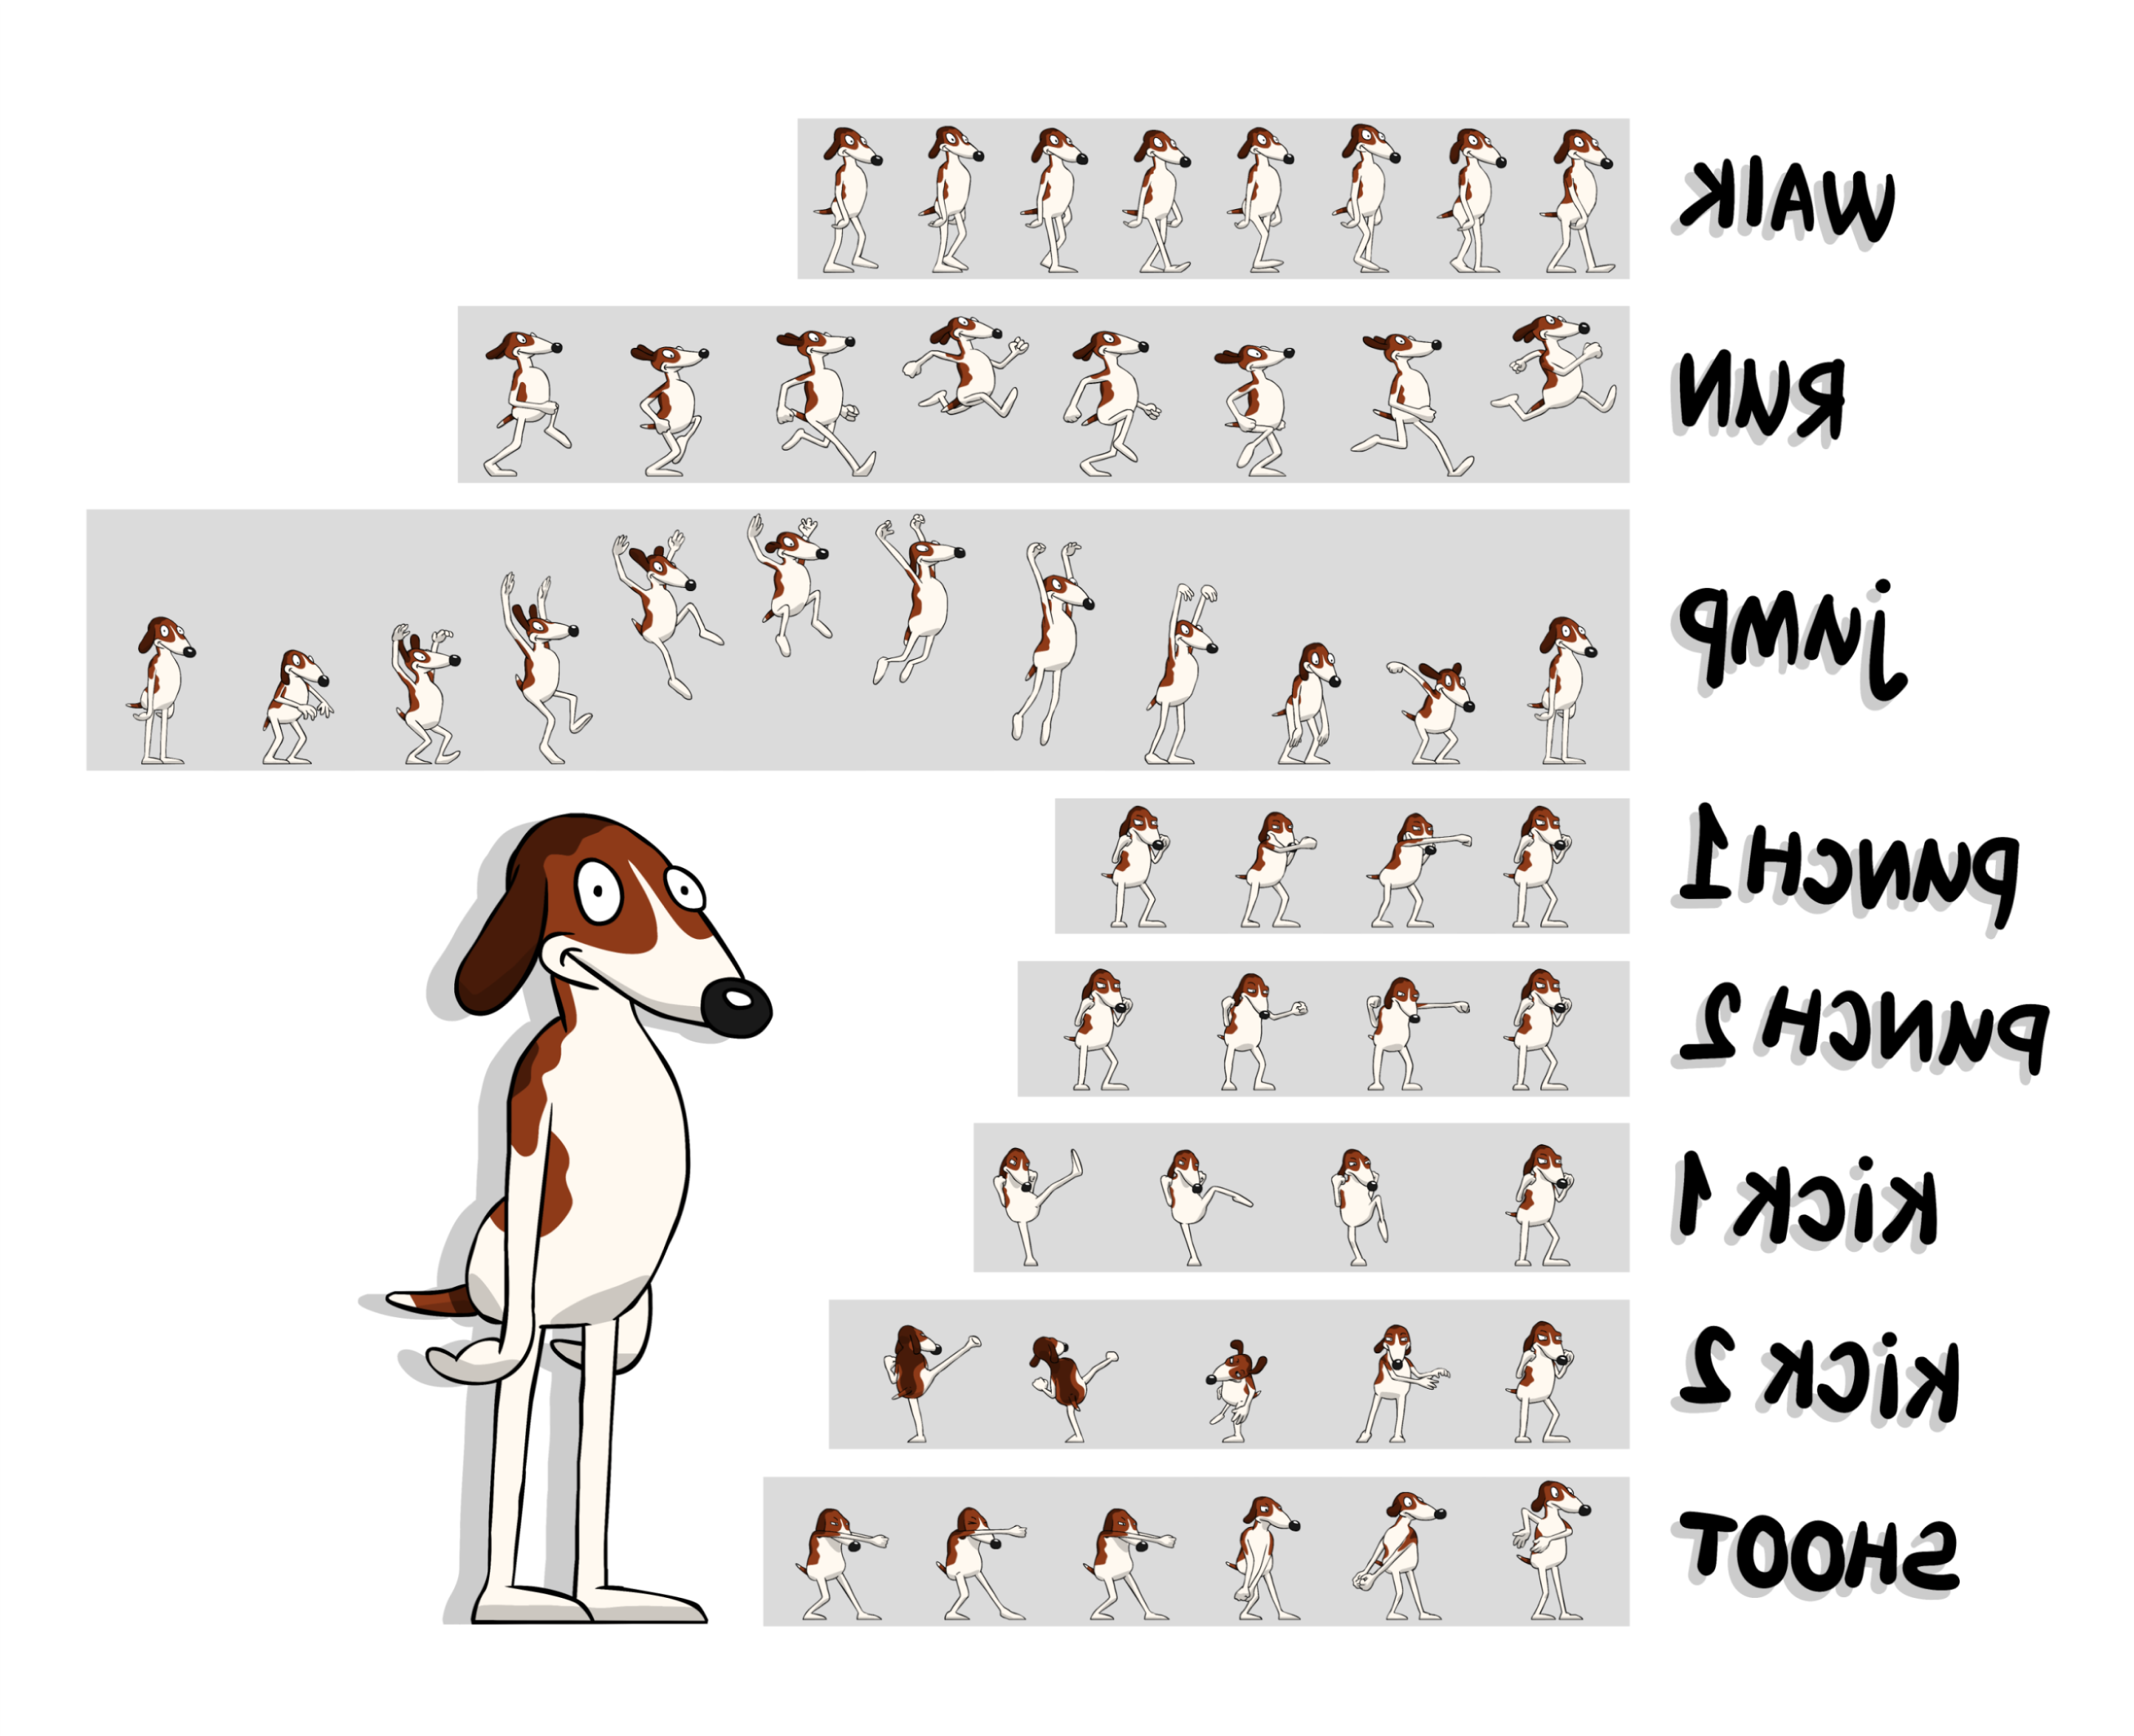 WAlK
RUN
jUMP
PUNCH1
PUNCH 2
KiCK 1
KiCK 2
SHOOT